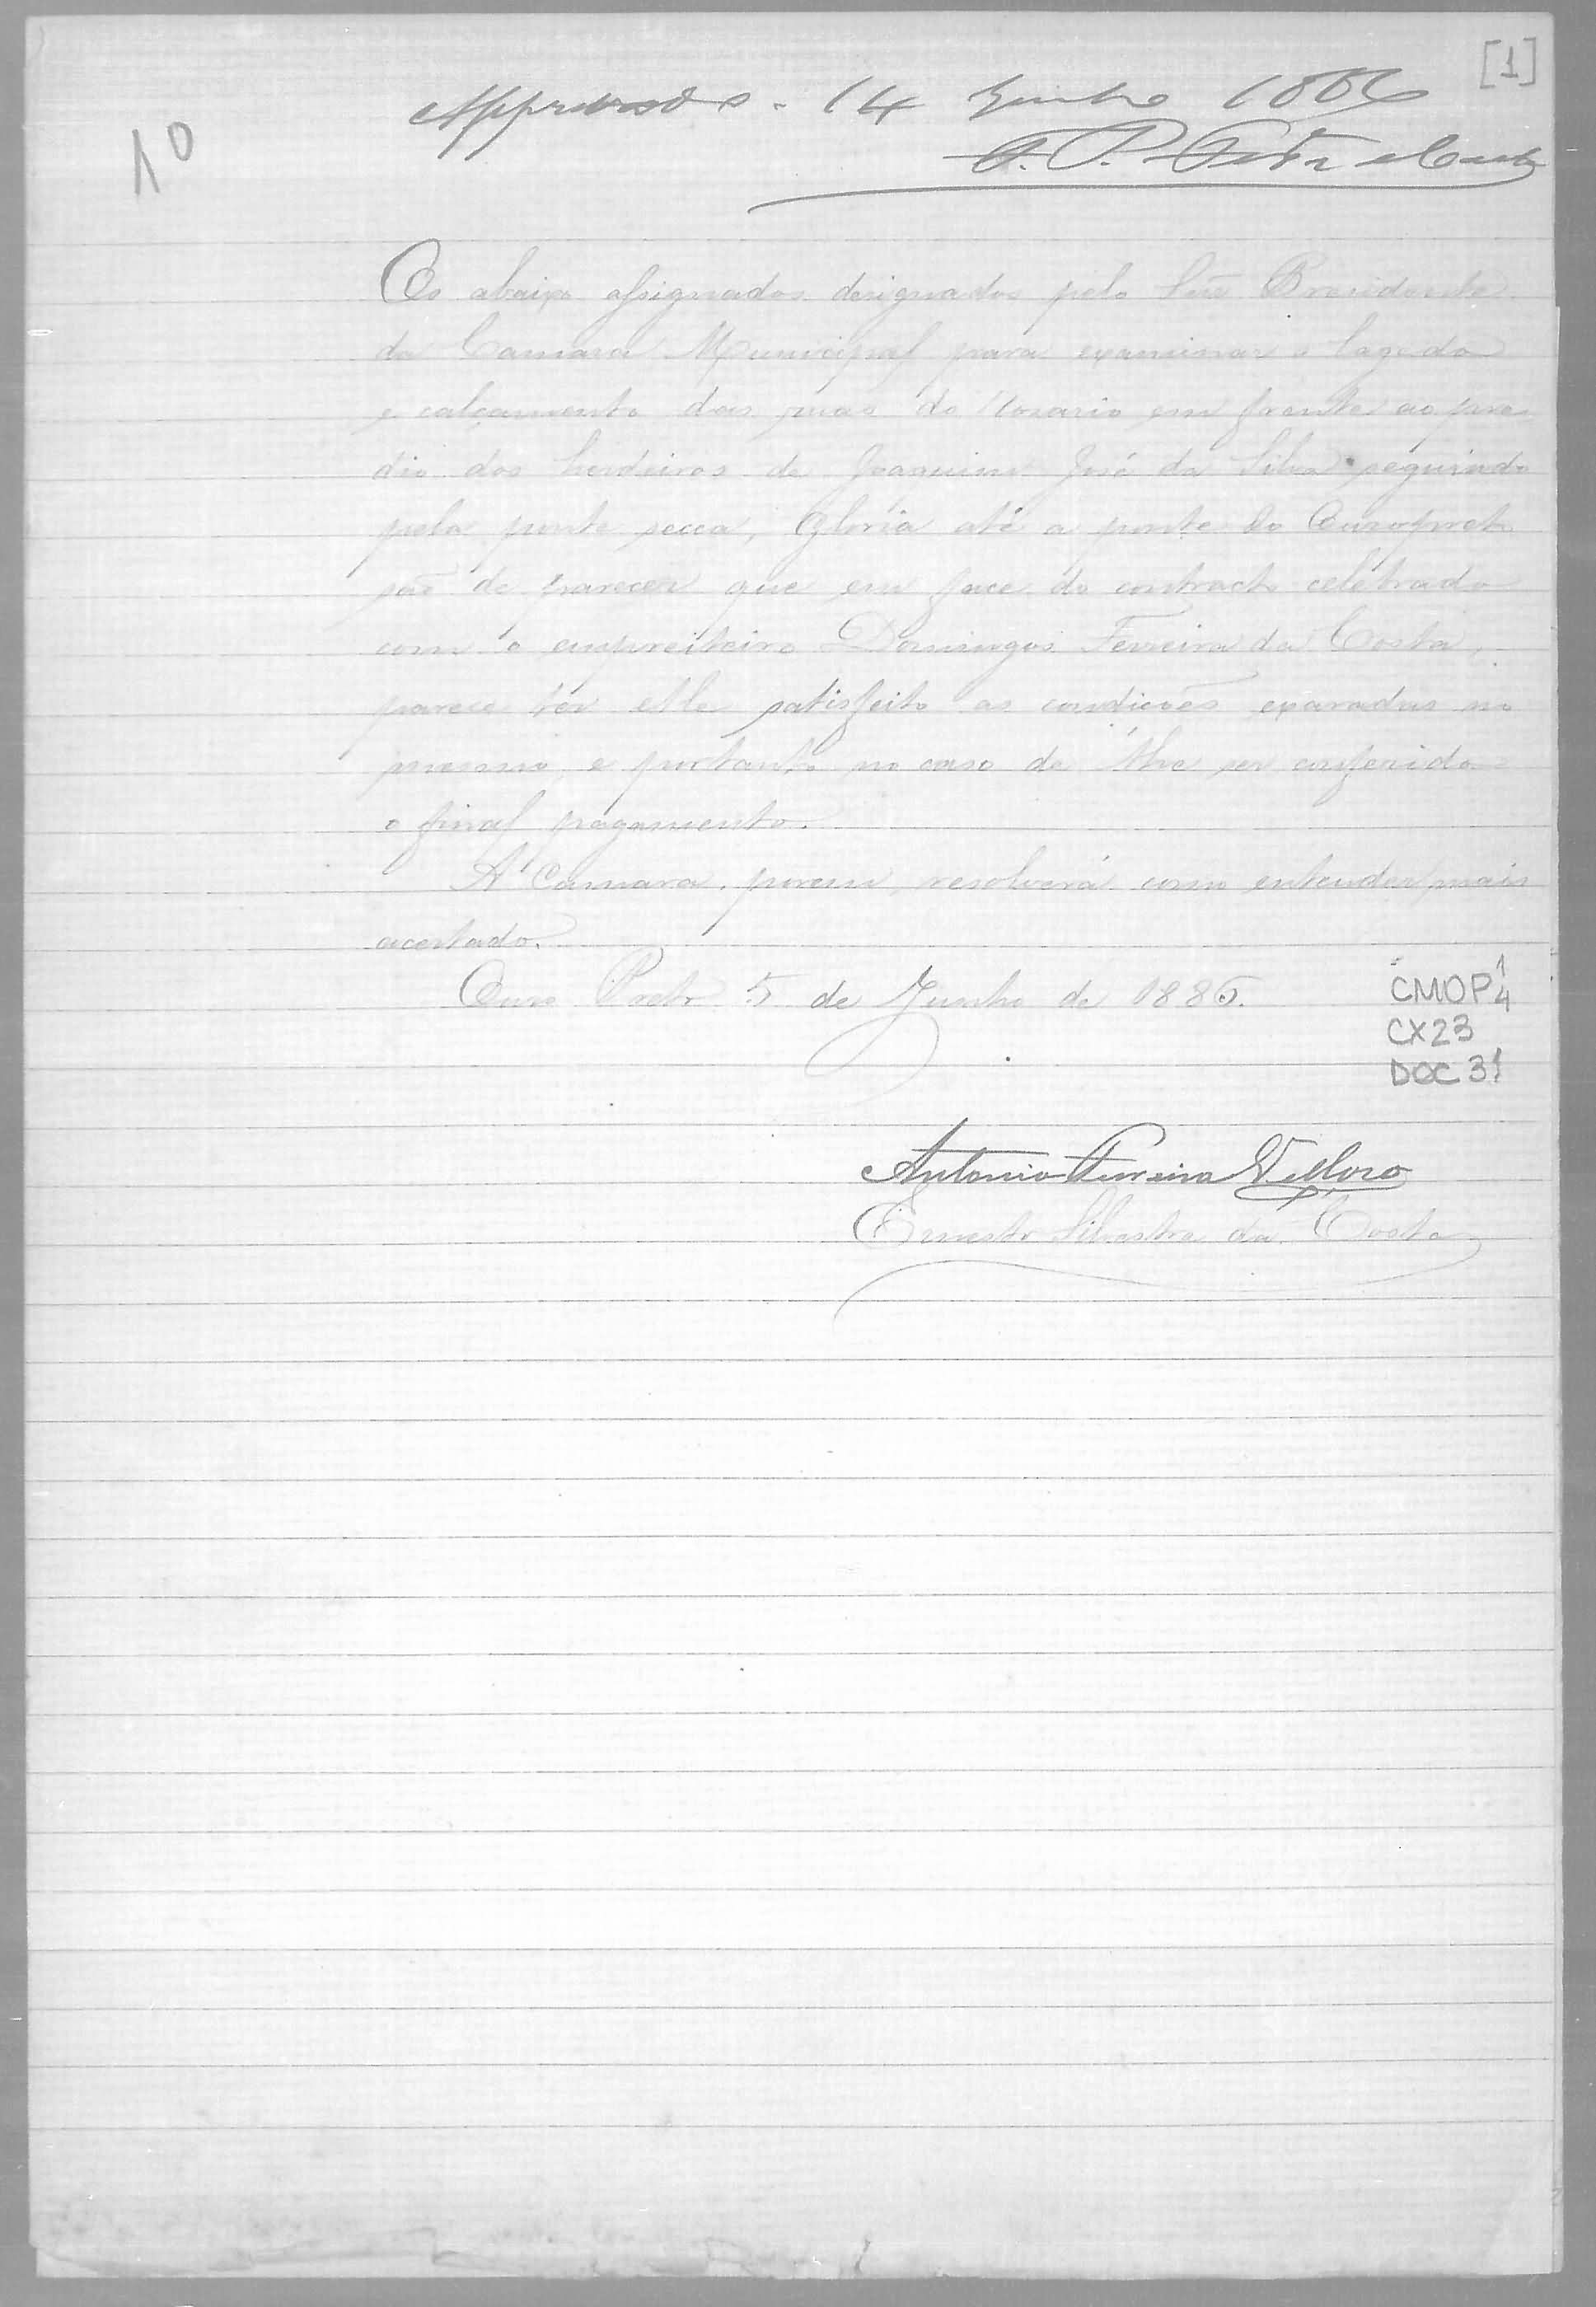 [1]
10
Approvado. 14 Junho 1886
Os abaixo assignados designados pelo Snr Presidente
da Camara Municipal para examinar o lagedo
e calçamento das ruas do Rosario em frente ao pre
dio dos herdeiros de Joaquim José da Silva seguindo
pela ponte secca, Gloria até a ponte do Ouro preto
são de parecer que em face do contracto celebrado
com o empreiteiro Domingos Ferreira da Costa,
parece ter elle satisfeito as condicões exaradas no
mesmo, e portanto no caso de lhe ser conferido
o final pagamento.
A Camara, porem, resolverá como entender mais
acertado.
Ouro Preto 5 de Junho de 1886.
CMOP 1/4
CX23
DOC 31
Antonio Ferreira Velloso
Ernesto Silvestre da Costa